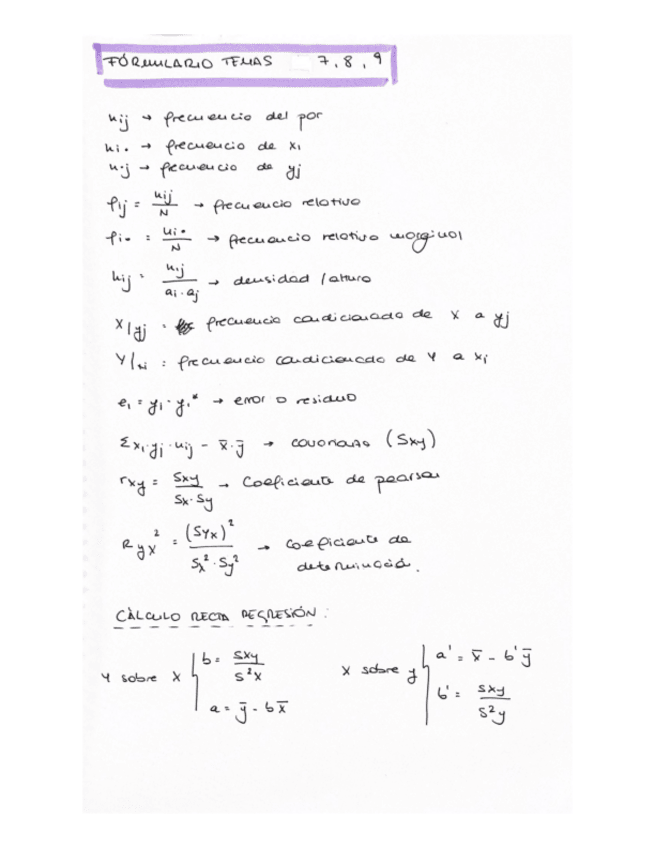 FÓRMULARIO TEMAS 7, 8, 9
nij → frecuencia del par
ni• → frecuencia de xi
n•j → frecuencia de yj
fij = nij / N → frecuencia relativa
fi• = ni• / N → frecuencia relativa marginal
hij = nij / ai · aj → densidad / altura
X/yj = frecuencia condicionada de X a yj
Y/xi = frecuencia condicionada de Y a xi
ei = yi - yi* → error o residuo
Σ xi·yj·nij - x̄·ȳ → covarianza (Sxy)
rxy = Sxy / Sx · Sy → Coeficiente de pearson
Ryx² = (Syx)² / Sx² · Sy² → Coeficiente de
determinación.
CÁLCULO RECTA REGRESIÓN :
Y sobre X { b = Sxy / S²x
a = ȳ - b x̄
X sobre y { a' = x̄ - b' ȳ
b' = Sxy / S²y